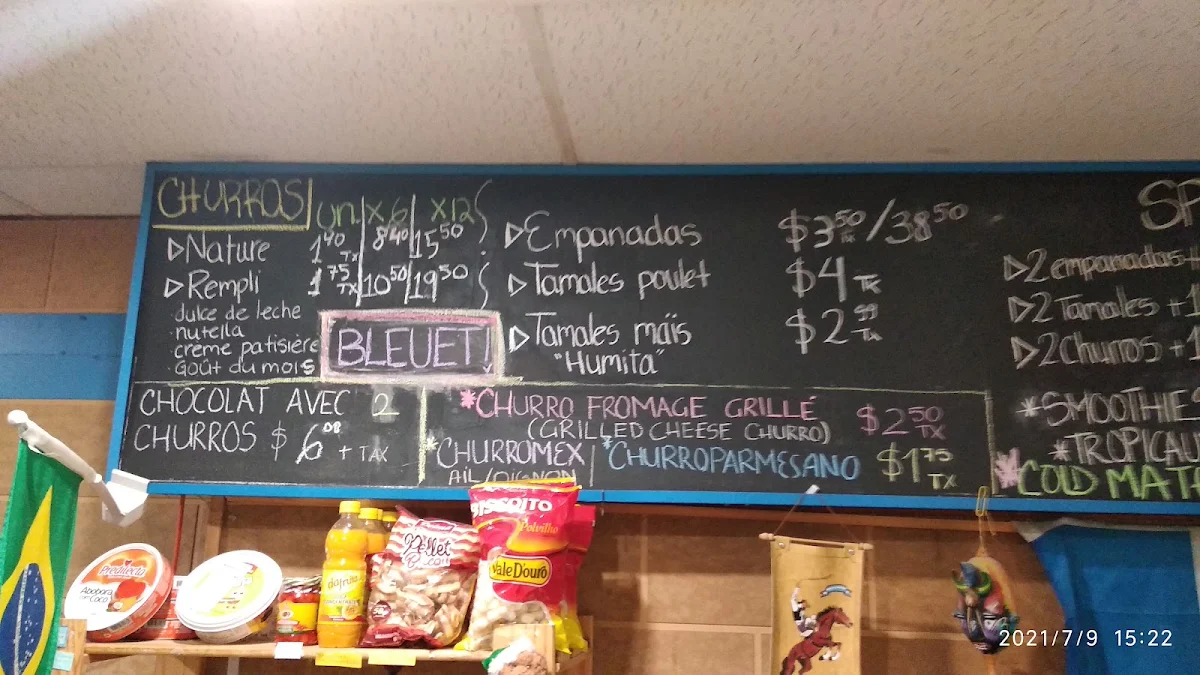 CHURROS un. x6 x12
▷Nature 1.40 TX 8.40 15.50
▷Rempli 1.75 TX 10.50 19.50
·dulce de leche
·nutella
·crème patisière
·Goût du mois
BLEUET!
▷Empanadas $3.50 TX / 38.50
▷Tamales poulet $4 TX
▷Tamales mäis $2.99 TX
"Humita"
CHOCOLAT AVEC 2
CHURROS $6.00 + TAX
*CHURRO FROMAGE GRILLÉ $2.50 TX
(GRILLED CHEESE CHURRO)
*CHURROMEX *CHURROPARMESANO $1.75 TX
AIL/OIGNON
SP
▷2 empanadas +
▷2 Tamales +1
▷2 Churros +1
*SMOOTHIES
*TROPICAL
*COLD MAT
Predilecta
Abóbora
com Coco
Pellet
BISSOITO
Polvilho
Vale D'ouro
2021/7/9 15:22